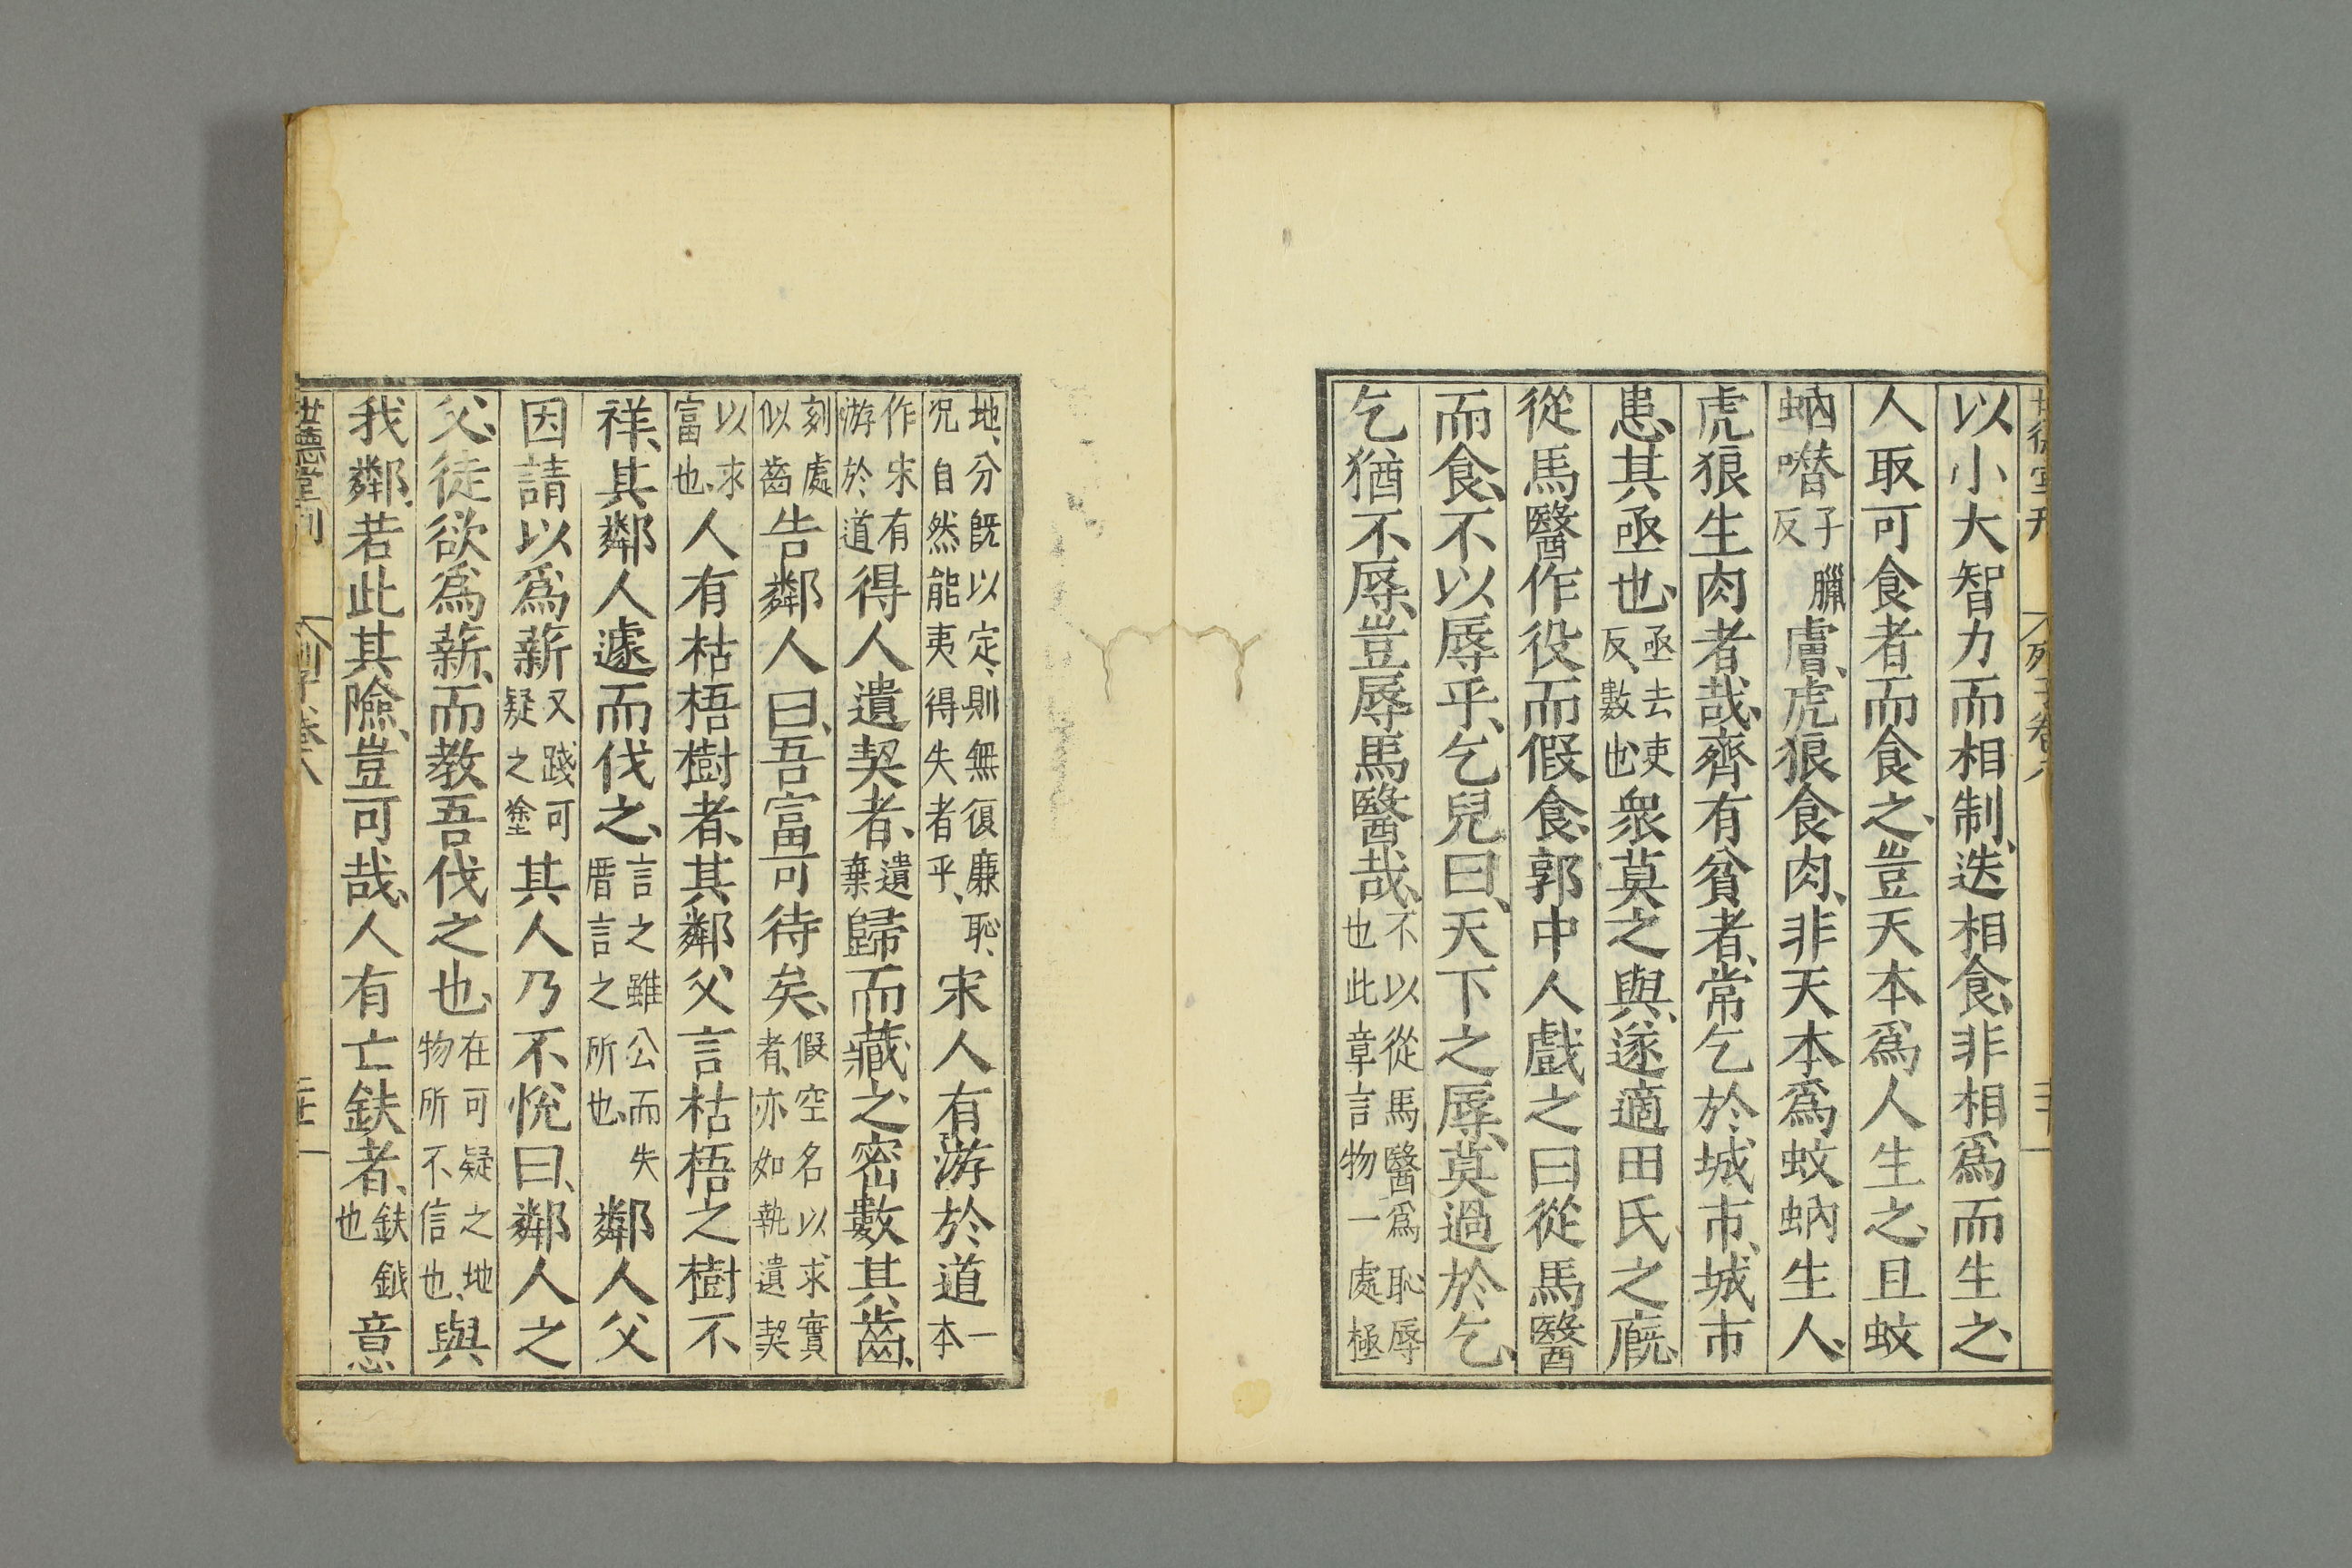 以小大智力而相制、迭相食、非相爲而生之、
人取可食者而食之、豈天本爲人生之、且蚊
蚋噆子反臘膚、虎狼食肉、非天本爲蚊蚋生人、
虎狼生肉者哉、齊有貧者、常乞於城市、城市
患、其亟也、亟去吏反、數也衆莫之與、遂適田氏之廐、
從馬醫作役而假食、郭中人戲之曰從馬醫
而食、不以辱乎、乞兒曰、天下之辱、莫過於乞、
乞猶不辱、豈辱馬醫哉、不以從馬醫爲恥辱也此章言物一處極
地、分旣以定、則無復廉恥、况自然能夷得失者乎、宋人有游於道一本
作宋有游於道得人遺契者、遺棄歸而藏之、密數其齒、
刻處似齒告鄰人曰、吾富可待矣、假空名以求實者、亦如執遺契
以求富也、人有枯梧樹者、其鄰父言枯梧之樹不
祥、其鄰人遽而伐之、言之雖公而失厝言之所也、鄰人父
因請以爲薪又踐可疑之塗其人乃不悅曰、鄰人之
父、徒欲爲薪、而教吾伐之也、在可疑之地物所不信也、與
我鄰、若此其險、豈可哉、人有亡鈇者、鈇鉞也意
世德堂刊 卷八